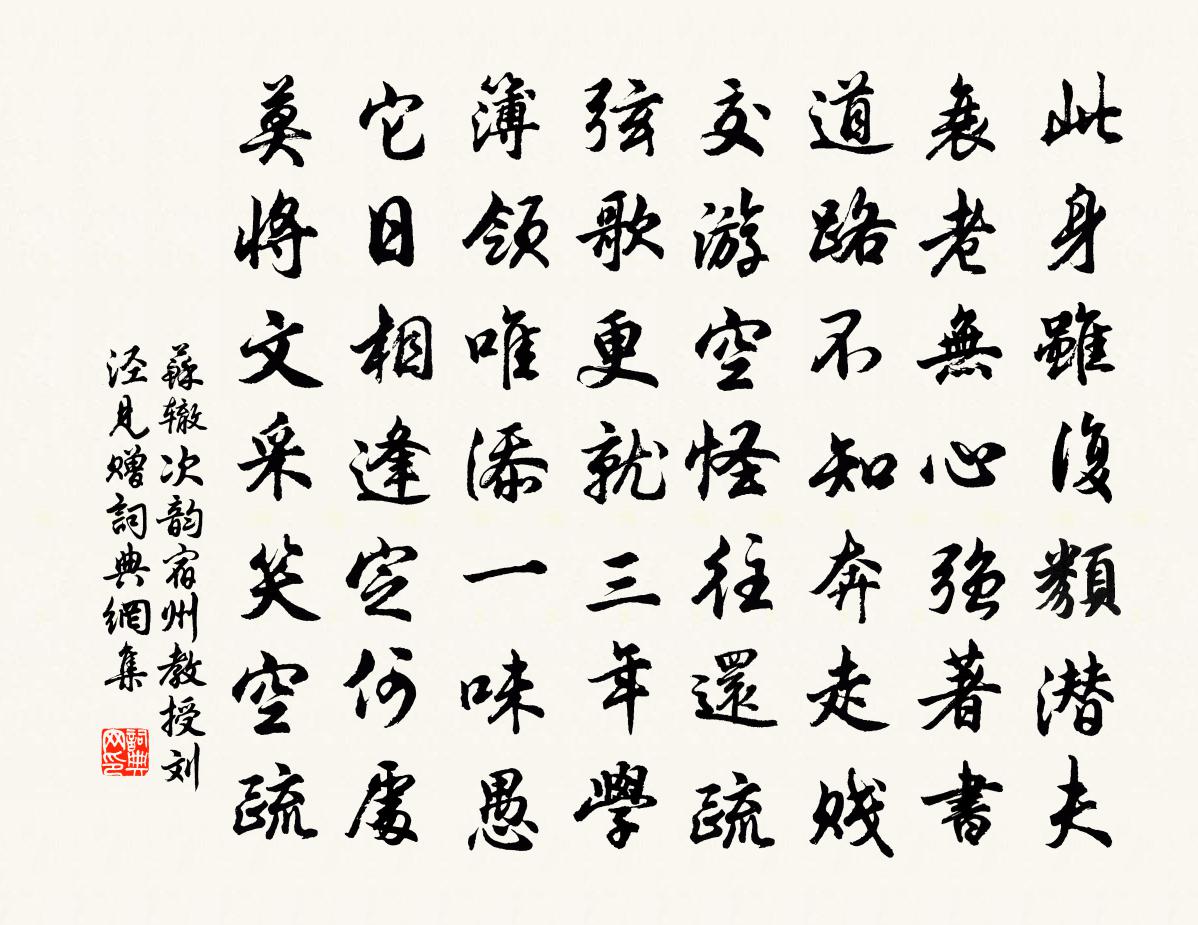 此身雖復類潜夫
衰老無心强著書
道路不知奔走賤
交游空怪往還疏
弦歌更就三年學
簿領唯添一味愚
它日相逢定何處
莫將文采笑空疏
蘇辙次韵宿州教授刘
泾見赠詞典網集
詞典网印